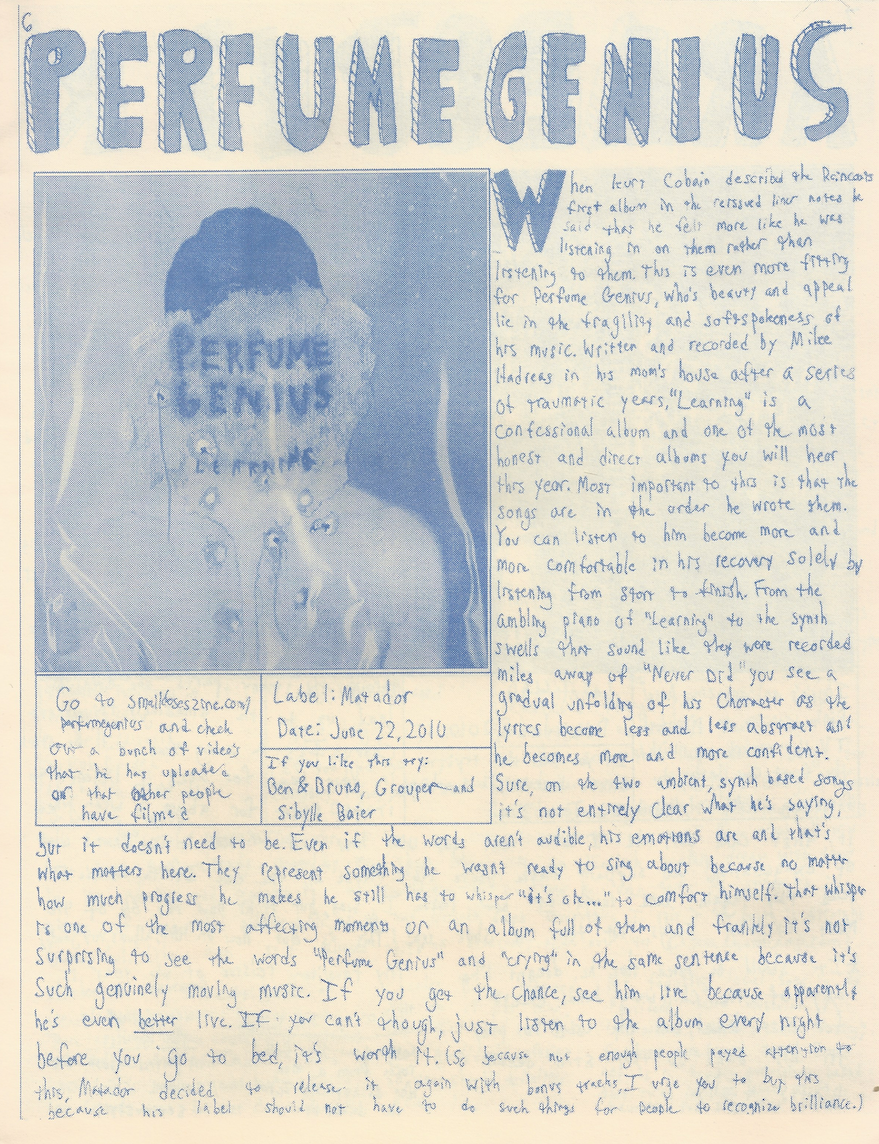 6
PERFUME GENIUS
PERFUME
GENIUS
LEARNING
When Kurt Cobain described the Raincoats
first album in the reissued liner notes he
said that he felt more like he was
listening in on them rather than
listening to them. This is even more fitting
for Perfume Genius, who's beauty and appeal
lie in the fragility and softspokeness of
his music. Written and recorded by Mike
Hadreas in his mom's house after a series
of traumatic years, "Learning" is a
confessional album and one of the most
honest and direct albums you will hear
this year. Most important to this is that the
songs are in the order he wrote them.
You can listen to him become more and
more comfortable in his recovery solely by
listening from start to finish. From the
ambling piano of "Learning" to the synth
swells that sound like they were recorded
miles away of "Never Did" you see a
gradual unfolding of his character as the
lyrics become less and less abstract and
he becomes more and more confident.
Sure, on the two ambient, synth based songs
it's not entirely clear what he's saying,
but it doesn't need to be. Even if the words aren't audible, his emotions are and that's
what matters here. They represent something he wasn't ready to sing about because no matter
how much progress he makes he still has to whisper "it's ok..." to comfort himself. That whisper
is one of the most affecting moments on an album full of them and frankly it's not
surprising to see the words "Perfume Genius" and "crying" in the same sentence because it's
such genuinely moving music. If you get the chance, see him live because apparently
he's even better live. If you can't though, just listen to the album every night
before you go to bed, it's worth it. (So because not enough people payed attention to
this, Matador decided to release it again with bonus tracks, I urge you to buy this
because his label should not have to do such things for people to recognize brilliance.)
Go to smalldoseszine.com/
perfumegenius and check
out a bunch of video's
that he has uploaded
or that other people
have filmed
Label: Matador
Date: June 22, 2010
If you like this try:
Ben & Bruno, Grouper and
Sibylle Baier